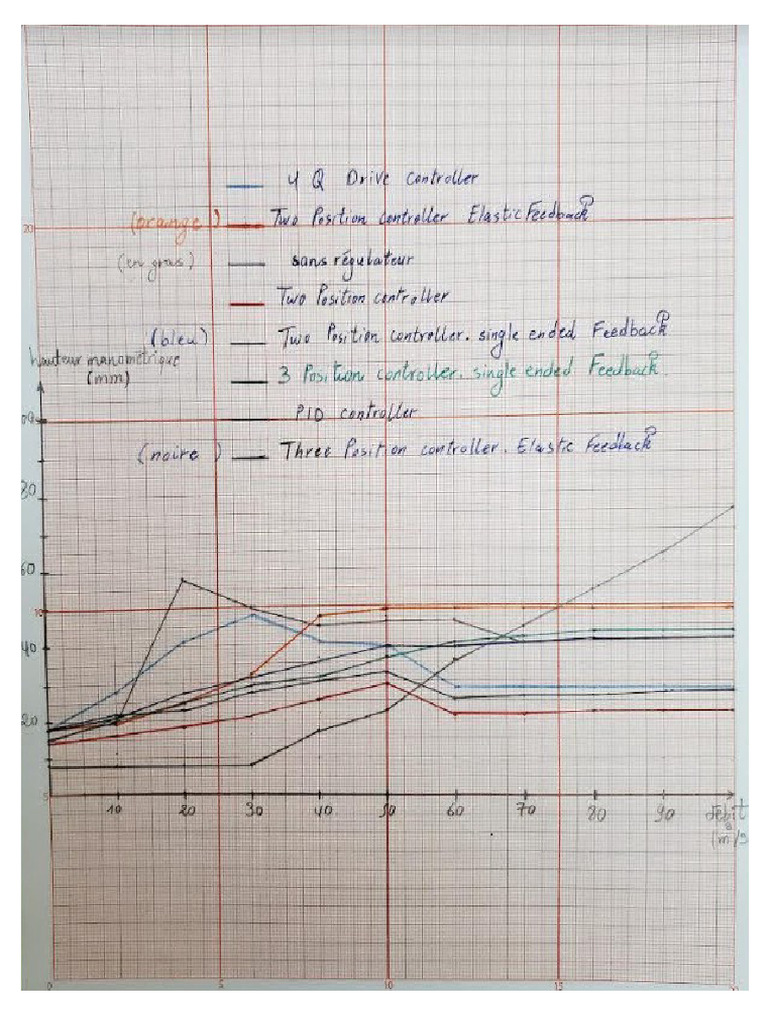 4 Q Drive Controller
(orange) Two Position controller Elastic Feedback
20
(en gras) sans régulateur
Two Position controller
(bleu) Two Position controller. single ended Feedback
hauteur manométrique
(mm)
3 Position controller. single ended Feedback.
PID controller
(noire) Three Position controller. Elastic Feedback
80
60
10
40
20
5
10 20 30 40 50 60 70 80 90 débit
0 5 10 15